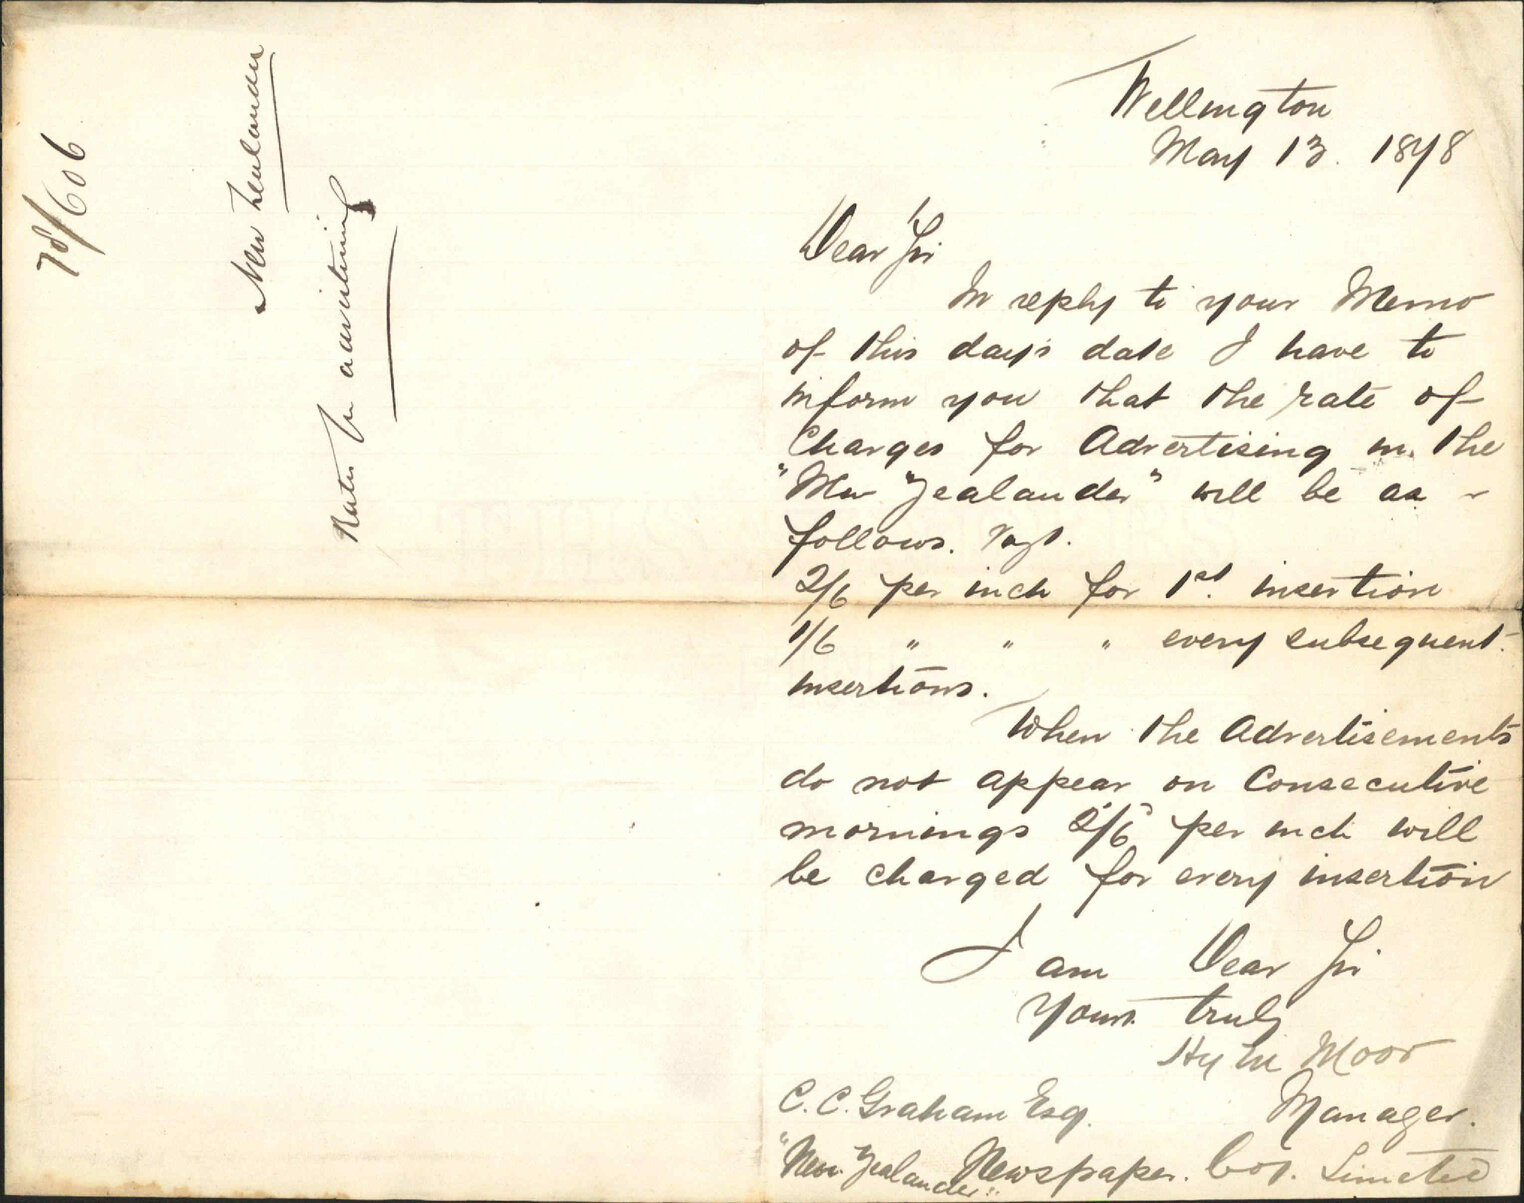 78/606
New Zealander
Rates for advertising
Wellington
May 13. 1878
Dear Sir
In reply to your Memo
of this day's date I have to
inform you that the rate of
Charges for Advertising in the
"New Zealander" will be as
follows. Vizt.
2/6 per inch for 1st. insertion
1/6 " " " every subsequent
insertions.
When the Advertisements
do not appear on Consecutive
mornings 2/6 per inch will
be charged for every insertion
I am Dear Sir
Yours truly
Hy Moor
C. C. Graham Esq. Manager.
"New Zealander" Newspaper. Coy. Limited